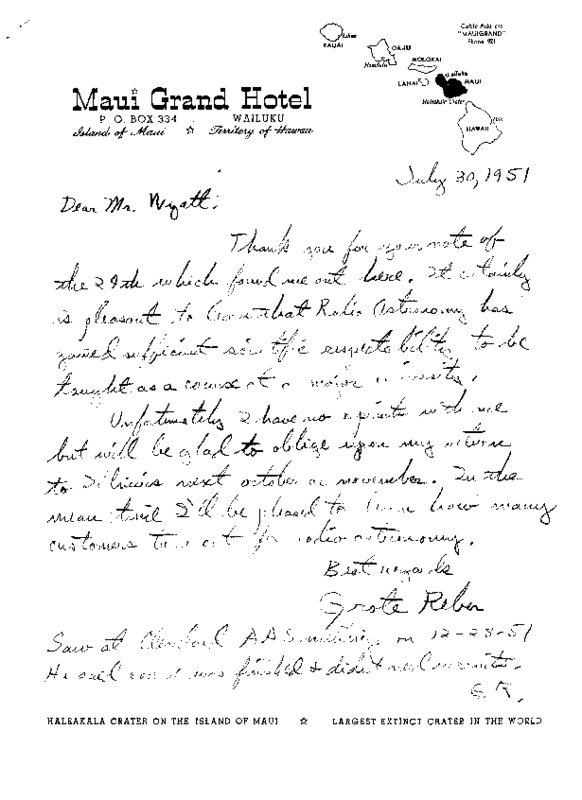 Cable Address
"MAUIGRAND"
Phone 921
KAUAI
OAHU
Honolulu
MOLOKAI
LANAI
MAUI
Haleakala Crater
HAWAII
Hilo
Maui Grand Hotel
P. O. BOX 334 WAILUKU
Island of Maui ☆ Territory of Hawaii
July 30, 1951
Dear Mr. Wyatt:
Thank you for your note of
the 29th which found me out here. It certainly
is pleasant to learn that Radio Astronomy has
gained sufficient scientific respectability to be
taught as a course at a major university.
Unfortunately I have no reprints with me
but will be glad to oblige upon my return
to Illinois next october or november. In the
mean time I'll be pleased to learn how many
customers turn out for radio astronomy.
Best regards
Grote Reber
Saw at Cleveland AAS meeting on 12-28-51
He said course was finished & didn't need reprints.
G.R.
HALEAKALA CRATER ON THE ISLAND OF MAUI ☆ LARGEST EXTINCT CRATER IN THE WORLD